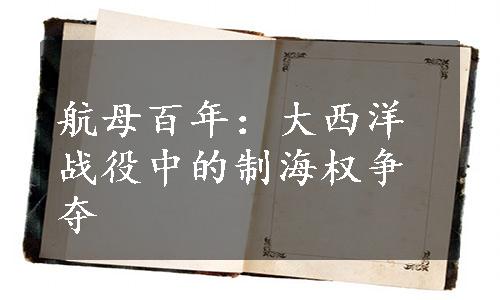 航母百年：大西洋
战役中的制海权争
夺